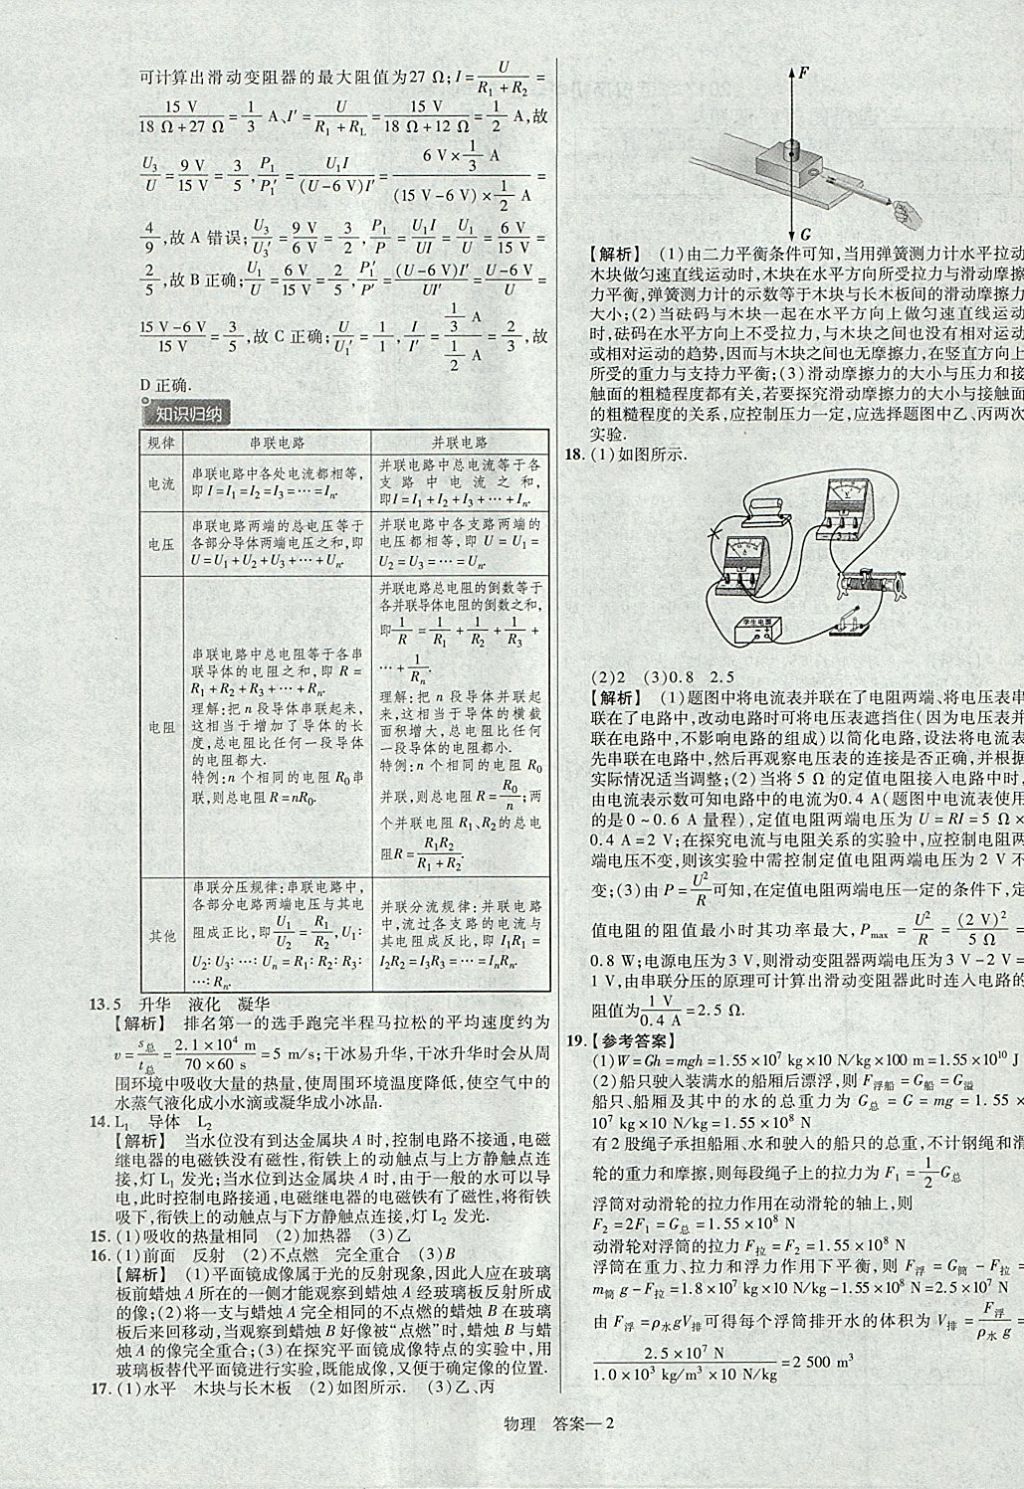 可计算出滑动变阻器的最大阻值为27 Ω;I=U/(R₁+R₂)=
15 V/(18 Ω+27 Ω)=1/3 A、I′=U/(R₁+R_L)=15 V/(18 Ω+12 Ω)=1/2 A,故
U₃/U=9 V/15 V=3/5,P₁/P₁′=U₁I/((U-6 V)I′)=(6 V×1/3 A)/((15 V-6 V)×1/2 A)=
4/9,故 A 错误;U₃/U₃′=9 V/6 V=3/2,P₁/P=U₁I/UI=U₁/U=6 V/15 V=
2/5,故 B 正确;U₁/U=6 V/15 V=2/5,P₁′/P′=(U-6 V)I′/UI′=(U-6 V)/U=
(15 V-6 V)/15 V=3/5,故 C 正确;U/U₁′=1/1,I/I′=(1/3 A)/(1/2 A)=2/3,故
D 正确.
知识归纳
规律 串联电路 并联电路
电流
串联电路中各处电流都相等,
即 I=I₁=I₂=I₃=⋯=Iₙ.
并联电路中总电流等于各
支路中电流之和,
即I=I₁+I₂+I₃+⋯+Iₙ.
电压
串联电路两端的总电压等于
各部分导体两端电压之和,即
U=U₁+U₂+U₃+⋯+Uₙ.
并联电路中各支路两端的
电压都相等,即 U=U₁=
U₂=U₃=⋯=Uₙ.
电阻
串联电路中总电阻等于各串
联导体的电阻之和,即 R=
R₁+R₂+R₃+⋯+Rₙ.
理解:把 n 段导体串联起来,
这相当于增加了导体的长
度,总电阻比任何一段导体
的电阻都大.
特例:n 个相同的电阻 R₀串
联,则总电阻 R=nR₀.
并联电路总电阻的倒数等于
各并联导体电阻的倒数之和,
即1/R=1/R₁+1/R₂+1/R₃+
⋯+1/Rₙ.
理解:把 n 段导体并联起
来,这相当于导体的横截
面积增大,总电阻比任何
一段导体的电阻都小.
特例:n 个相同的电阻 R₀
并联,则总电阻 R=R₀/n;两
个并联电阻R₁、R₂的总电
阻R=R₁R₂/(R₁+R₂).
其他
串联分压规律:串联电路中,
各部分电路两端电压与其电
阻成正比,即U₁/U₂=R₁/R₂,U₁∶
U₂∶U₃∶⋯∶Uₙ=R₁∶R₂∶R₃∶
⋯∶Rₙ.
并联分流规律:并联电路
中,流过各支路的电流与
其电阻成反比,即 I₁R₁=
I₂R₂=I₃R₃=⋯=IₙRₙ.
13.5 升华 液化 凝华
【解析】 排名第一的选手跑完半程马拉松的平均速度约为
v=s总/t总=2.1×10⁴ m/(70×60 s)=5 m/s;干冰易升华,干冰升华时会从周
围环境中吸收大量的热量,使周围环境温度降低,使空气中的
水蒸气液化成小水滴或凝华成小冰晶.
14.L₁ 导体 L₂
【解析】 当水位没有到达金属块 A 时,控制电路不接通,电磁
继电器的电磁铁没有磁性,衔铁上的动触点与上方静触点连
接,灯 L₁ 发光;当水位到达金属块 A 时,由于一般的水可以导
电,此时控制电路接通,电磁继电器的电磁铁有了磁性,将衔铁
吸下,衔铁上的动触点与下方静触点连接,灯 L₂ 发光.
15.(1)吸收的热量相同 (2)加热器 (3)乙
16.(1)前面 反射 (2)不点燃 完全重合 (3)B
【解析】 (1)平面镜成像属于光的反射现象,因此人应在玻璃
板前蜡烛 A 所在的一侧才能观察到蜡烛 A 经玻璃板反射所成
的像;(2)将一支与蜡烛 A 完全相同的不点燃的蜡烛 B 在玻璃
板后来回移动,当观察到蜡烛 B 好像被“点燃”时,蜡烛 B 与蜡
烛 A 的像完全重合;(3)在探究平面镜成像特点的实验中,用
玻璃板替代平面镜进行实验,既能成像,又便于确定像的位置.
17.(1)水平 木块与长木板 (2)如图所示. (3)乙、丙
F
G
【解析】 (1)由二力平衡条件可知,当用弹簧测力计水平拉动
木块做匀速直线运动时,木块在水平方向所受拉力与滑动摩擦
力平衡,弹簧测力计的示数等于木块与长木板间的滑动摩擦力
大小;(2)当砝码与木块一起在水平方向上做匀速直线运动
时,砝码在水平方向上不受拉力,与木块之间也没有相对运动
或相对运动的趋势,因而与木块之间也无摩擦力,在竖直方向上
所受的重力与支持力平衡;(3)滑动摩擦力的大小与压力和接
触面的粗糙程度都有关,若要探究滑动摩擦力的大小与接触面
的粗糙程度的关系,应控制压力一定,应选择题图中乙、丙两次
实验.
18.(1)如图所示.
V
- 3 15
A
学生电源
(2)2 (3)0.8 2.5
【解析】 (1)题图中将电流表并联在了电阻两端、将电压表串
联在了电路中,改动电路时可将电压表遮挡住(因为电压表并
联在电路中,不影响电路的组成)以简化电路,设法将电流表
先串联在电路中,然后再观察电压表的连接是否正确,并根据
实际情况适当调整;(2)当将 5 Ω 的定值电阻接入电路中时,
由电流表示数可知电路中的电流为0.4 A(题图中电流表使用
的是 0~0.6 A 量程),定值电阻两端电压为 U=RI=5 Ω×
0.4 A=2 V;在探究电流与电阻关系的实验中,应控制电阻两
端电压不变,则该实验中需控制定值电阻两端电压为 2 V 不
变;(3)由 P=U²/R可知,在定值电阻两端电压一定的条件下,定
值电阻的阻值最小时其功率最大,Pmax=U²/R=(2 V)²/5 Ω=
0.8 W;电源电压为3 V,则滑动变阻器两端电压为3 V-2 V=
1 V,由串联分压的原理可计算出滑动变阻器此时连入电路的
阻值为1 V/0.4 A=2.5 Ω.
19.【参考答案】
(1)W=Gh=mgh=1.55×10⁷ kg×10 N/kg×100 m=1.55×10¹⁰ J
(2)船只驶入装满水的船厢后漂浮,则 F浮船=G船=G溢
船只、船厢及其中的水的总重力为 G总=G=mg=1.55×
10⁷ kg×10 N/kg=1.55×10⁸ N
有 2 股绳子承担船厢、水和驶入的船只的总重,不计钢绳和滑
轮的重力和摩擦,则每段绳子上的拉力为 F₁=1/2G总
浮筒对动滑轮的拉力作用在动滑轮的轴上,则
F₂=2F₁=G总=1.55×10⁸ N
动滑轮对浮筒的拉力 F拉=F₂=1.55×10⁸ N
浮筒在重力、拉力和浮力作用下平衡,则 F浮=G筒-F拉=
m筒g-F拉=1.8×10⁷ kg×10 N/kg-1.55×10⁸ N=2.5×10⁷ N
由 F浮=ρ水gV排可得每个浮筒排开水的体积为 V排=F浮/ρ水g=
2.5×10⁷ N/(1.0×10³ kg/m³×10 N/kg)=2 500 m³
物理 答案—2